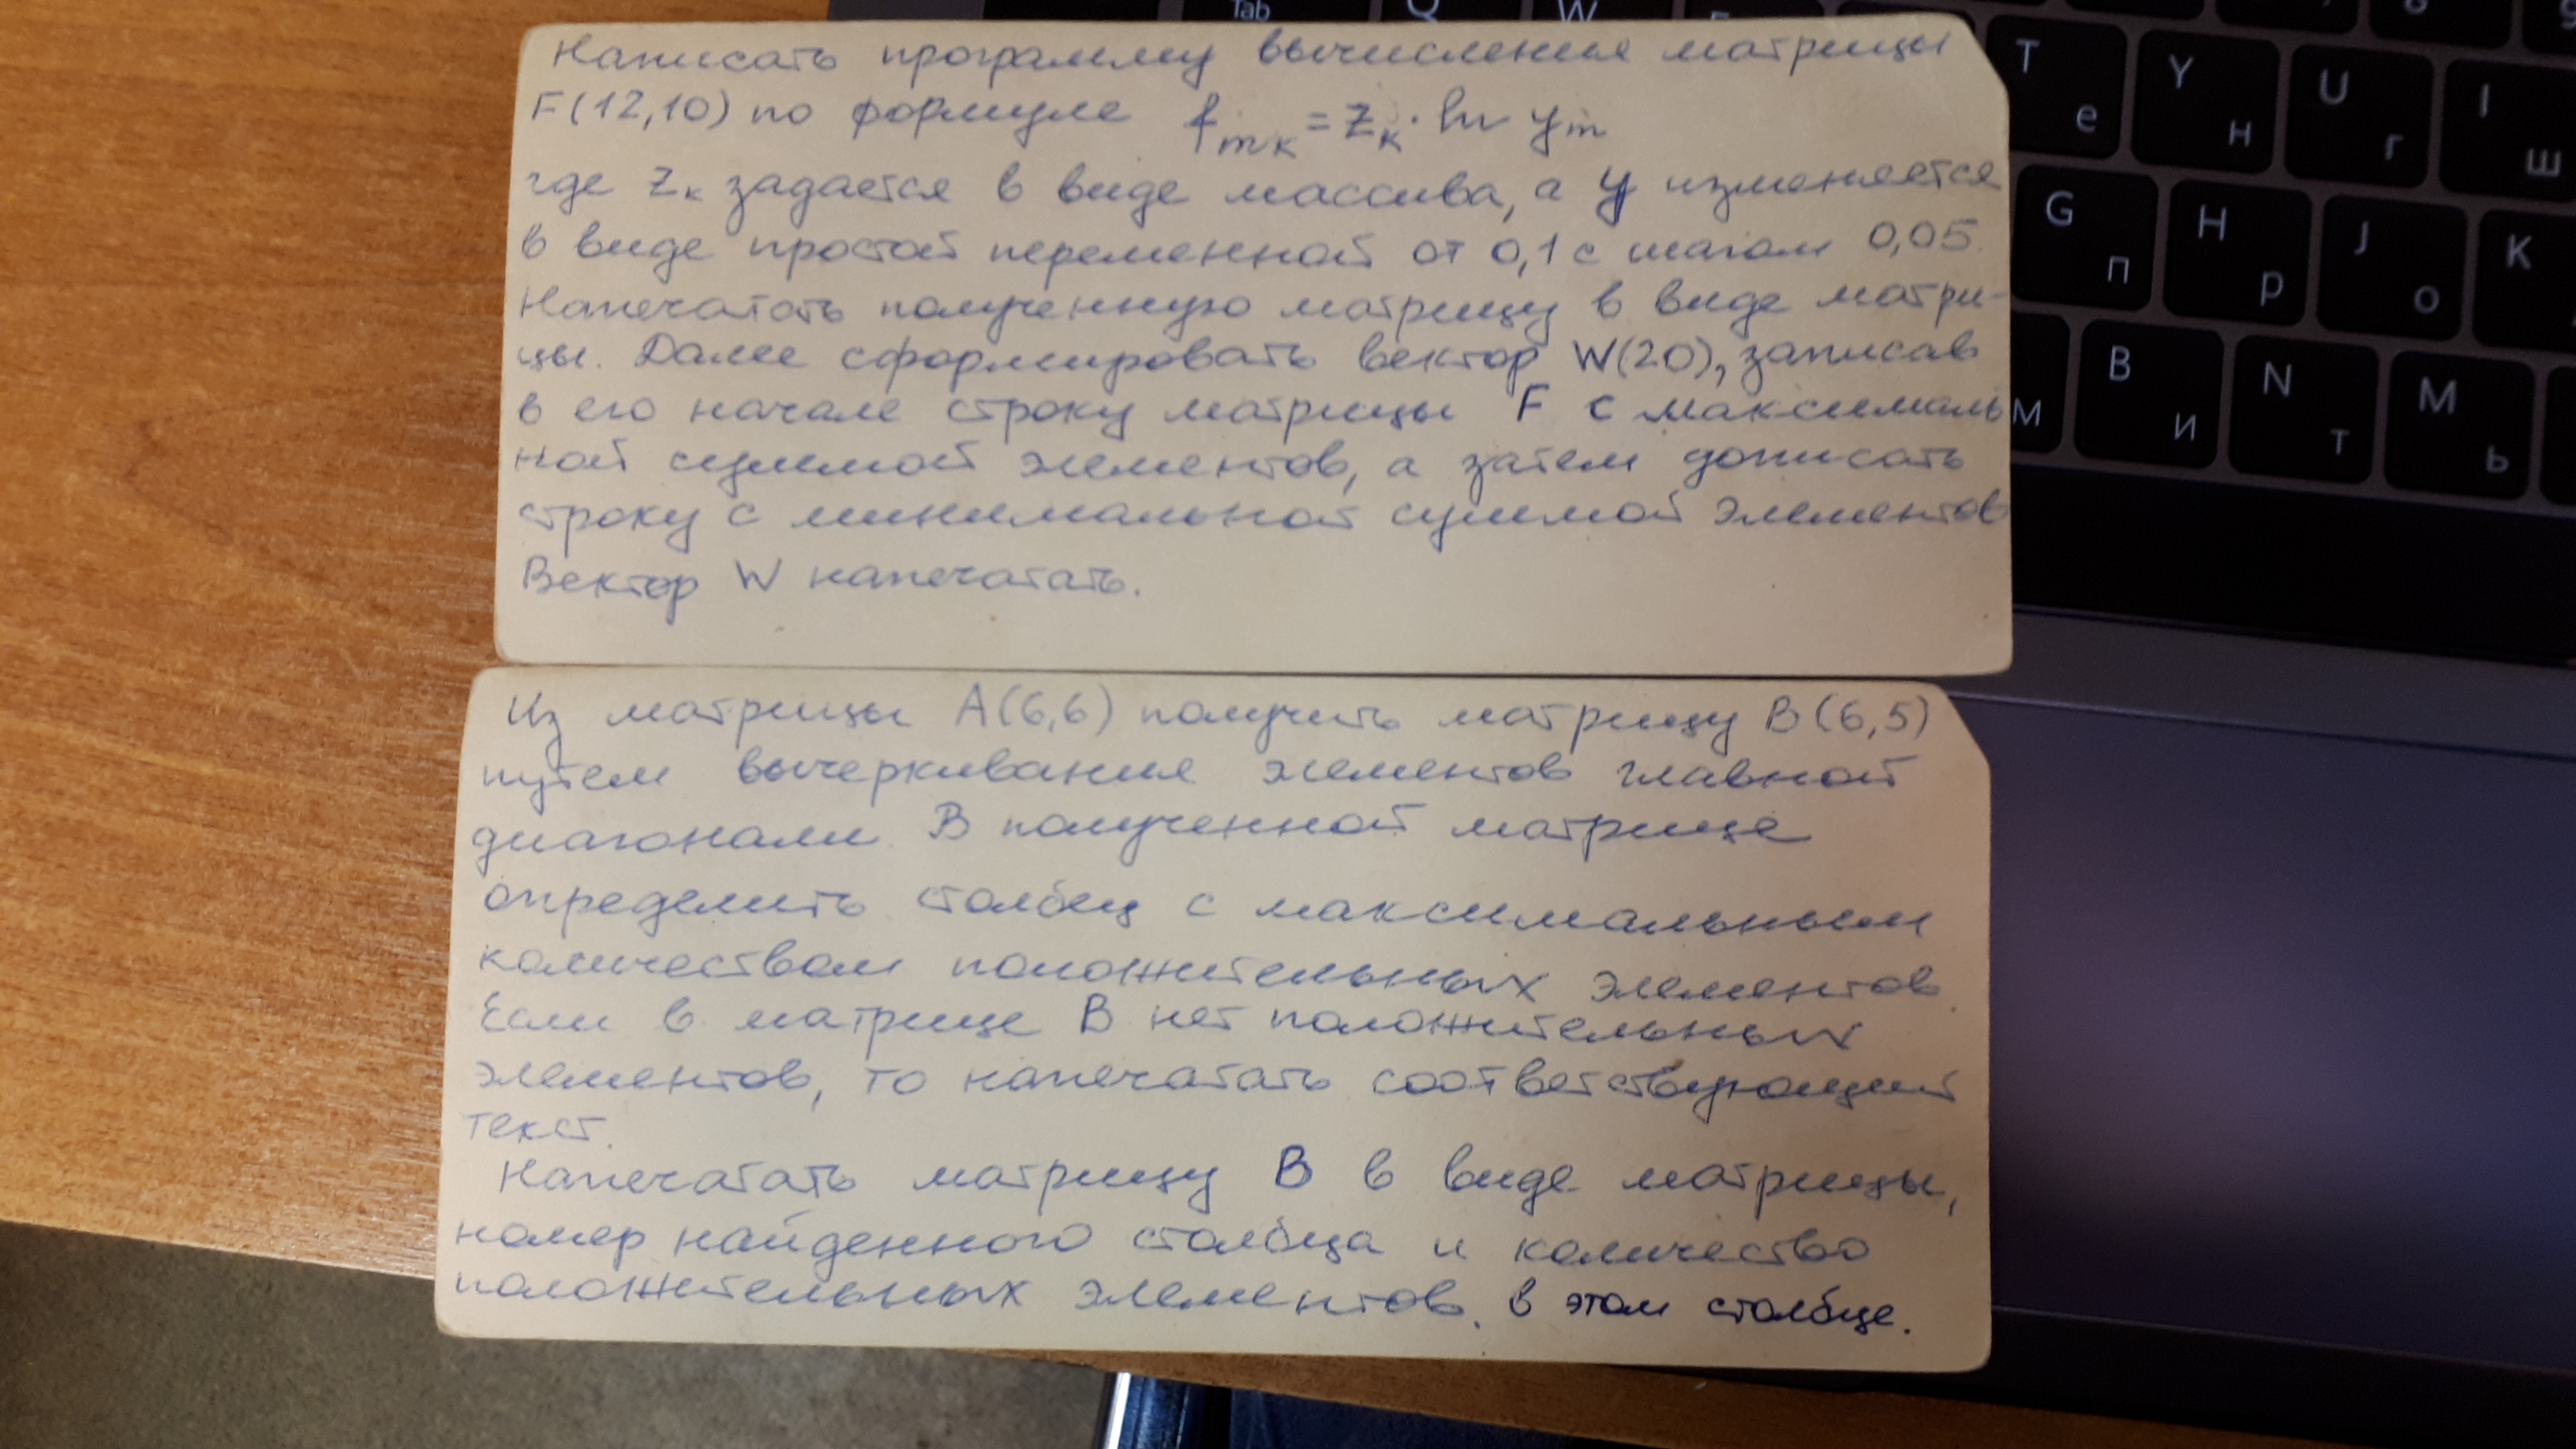 Tab Q W
T е Y н U г I ш
G п H р J о K
М B и N т M ь
Написать программу вычисления матрицы
F(12,10) по формуле f_mk = z_k · ln y_m
где z_k задается в виде массива, а y изменяется
в виде простой переменной от 0,1 с шагом 0,05.
Напечатать полученную матрицу в виде матри-
цы. Далее сформировать вектор W(20), записав
в его начале строку матрицы F с максималь
ной суммой элементов, а затем дописать
строку с минимальной суммой элементов
Вектор W напечатать.
Из матрицы A(6,6) получить матрицу B(6,5)
путем вычеркивания элементов главной
диагонали. В полученной матрице
определить столбец с максимальным
количеством положительных элементов.
Если в матрице B нет положительных
элементов, то напечатать соответствующий
текст.
Напечатать матрицу B в виде матрицы,
номер найденного столбца и количество
положительных элементов. в этом столбце.